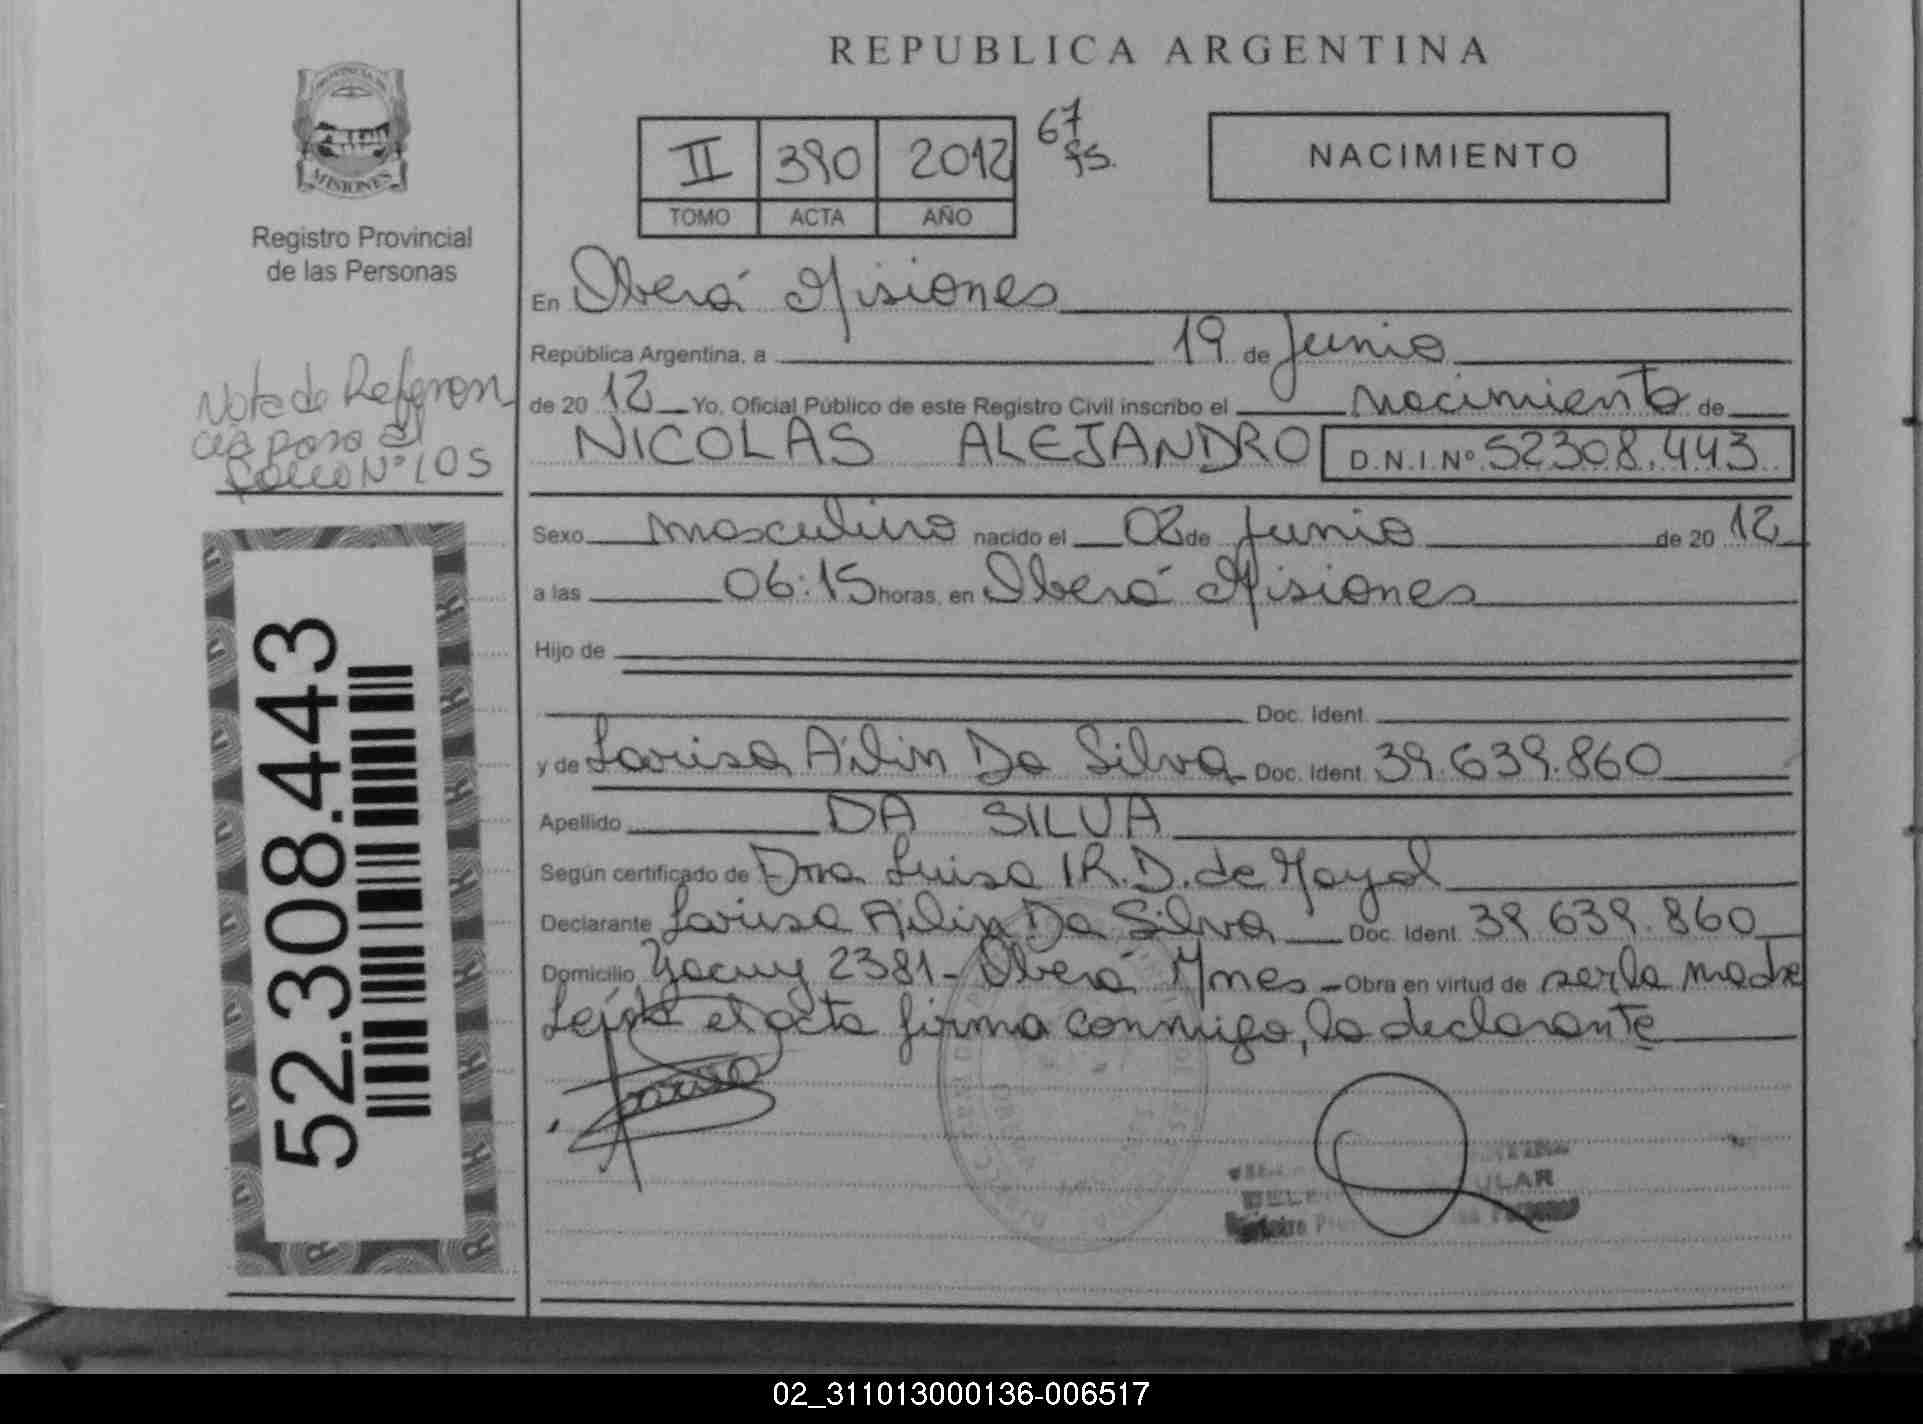 REPUBLICA ARGENTINA
PROVINCIA DE
MISIONES
Registro Provincial
de las Personas
II 390 2012 67 fs.
TOMO ACTA AÑO
NACIMIENTO
En Oberá Misiones
República Argentina, a 19 de Junio
de 20 12 Yo, Oficial Público de este Registro Civil inscribo el nacimiento de
NICOLAS ALEJANDRO D.N.I.Nº 52308.443
Nota de Referen
cia pasa al
Folio Nº 105
Sexo masculino nacido el 02 de Junio de 20 12
a las 06:15 horas, en Oberá Misiones
Hijo de
Doc. Ident.
y de Larisa Ailin Da Silva Doc. Ident. 39.639.860
Apellido DA SILVA
Según certificado de Dra Luisa R.D. de Mayol
Declarante Larisa Ailin Da Silva Doc. Ident. 39 639.860
Domicilio Yacuy 2381- Oberá Mnes - Obra en virtud de ser la madre
Leída el acta firma conmigo, la declarante
Larisa
52.308.443
ULAR
02_311013000136-006517